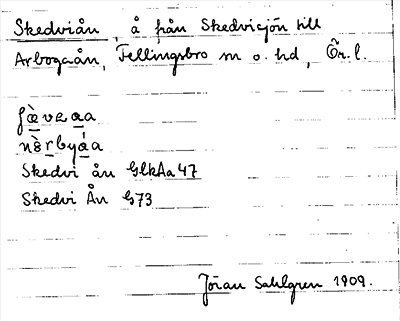 Skedviån, å från Skedvisjön till
Arbogaån, Fellingsbro sn o. hd, Ör. l.
nèrbyáa
Skedvi ån GlkAa 47
Skedvi Ån G73
Jöran Sahlgren 1909.